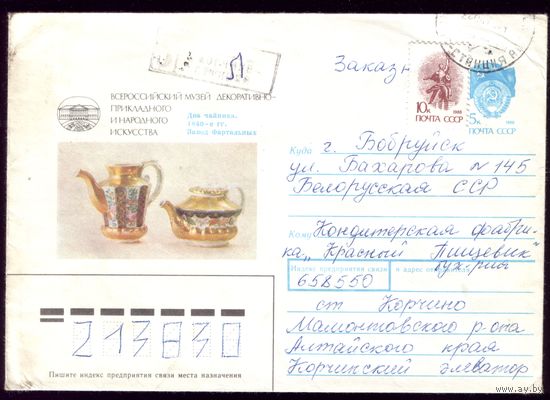 Заказн
ВСЕРОССИЙСКИЙ МУЗЕЙ ДЕКОРАТИВНО-
ПРИКЛАДНОГО
И НАРОДНОГО
ИСКУССТВА
Два чайника.
Завод
10к
1988
ПОЧТА СССР
5к
1988
ПОЧТА СССР
СТАНЦИЯ
Куда г. Бобруйск
ул. Бахарова N 145
Белорусская ССР
Кому Кондитерская фабри-
ка „Красный Пищевик"
бух-рия
Индекс предприятия связи и адрес
658550
ст Корчино
Мамонтовского р-она
Алтайского края
Корчинский элеватор
213830
Пишите индекс предприятия связи места назначения
www.ay.by